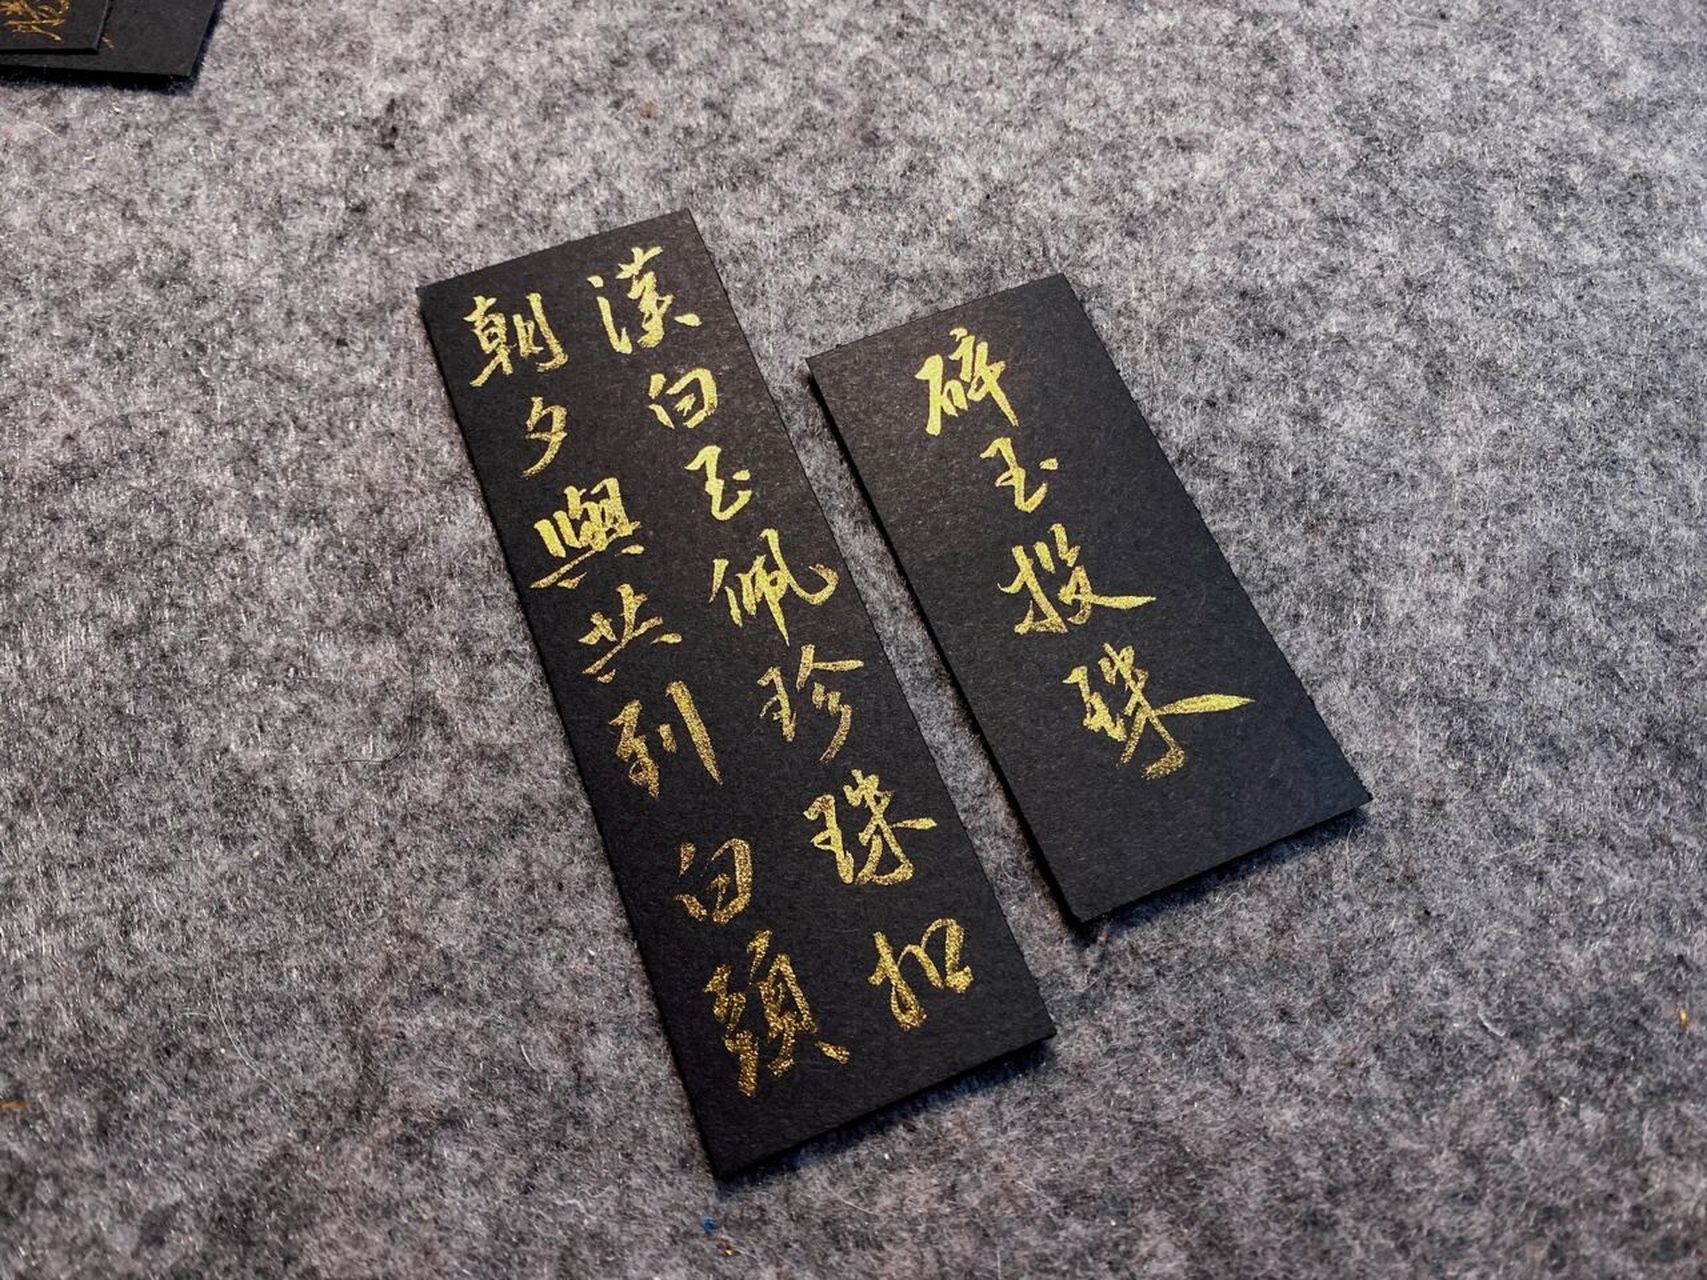 碎玉投珠
漢白玉佩珍珠扣
朝夕與共到白頭